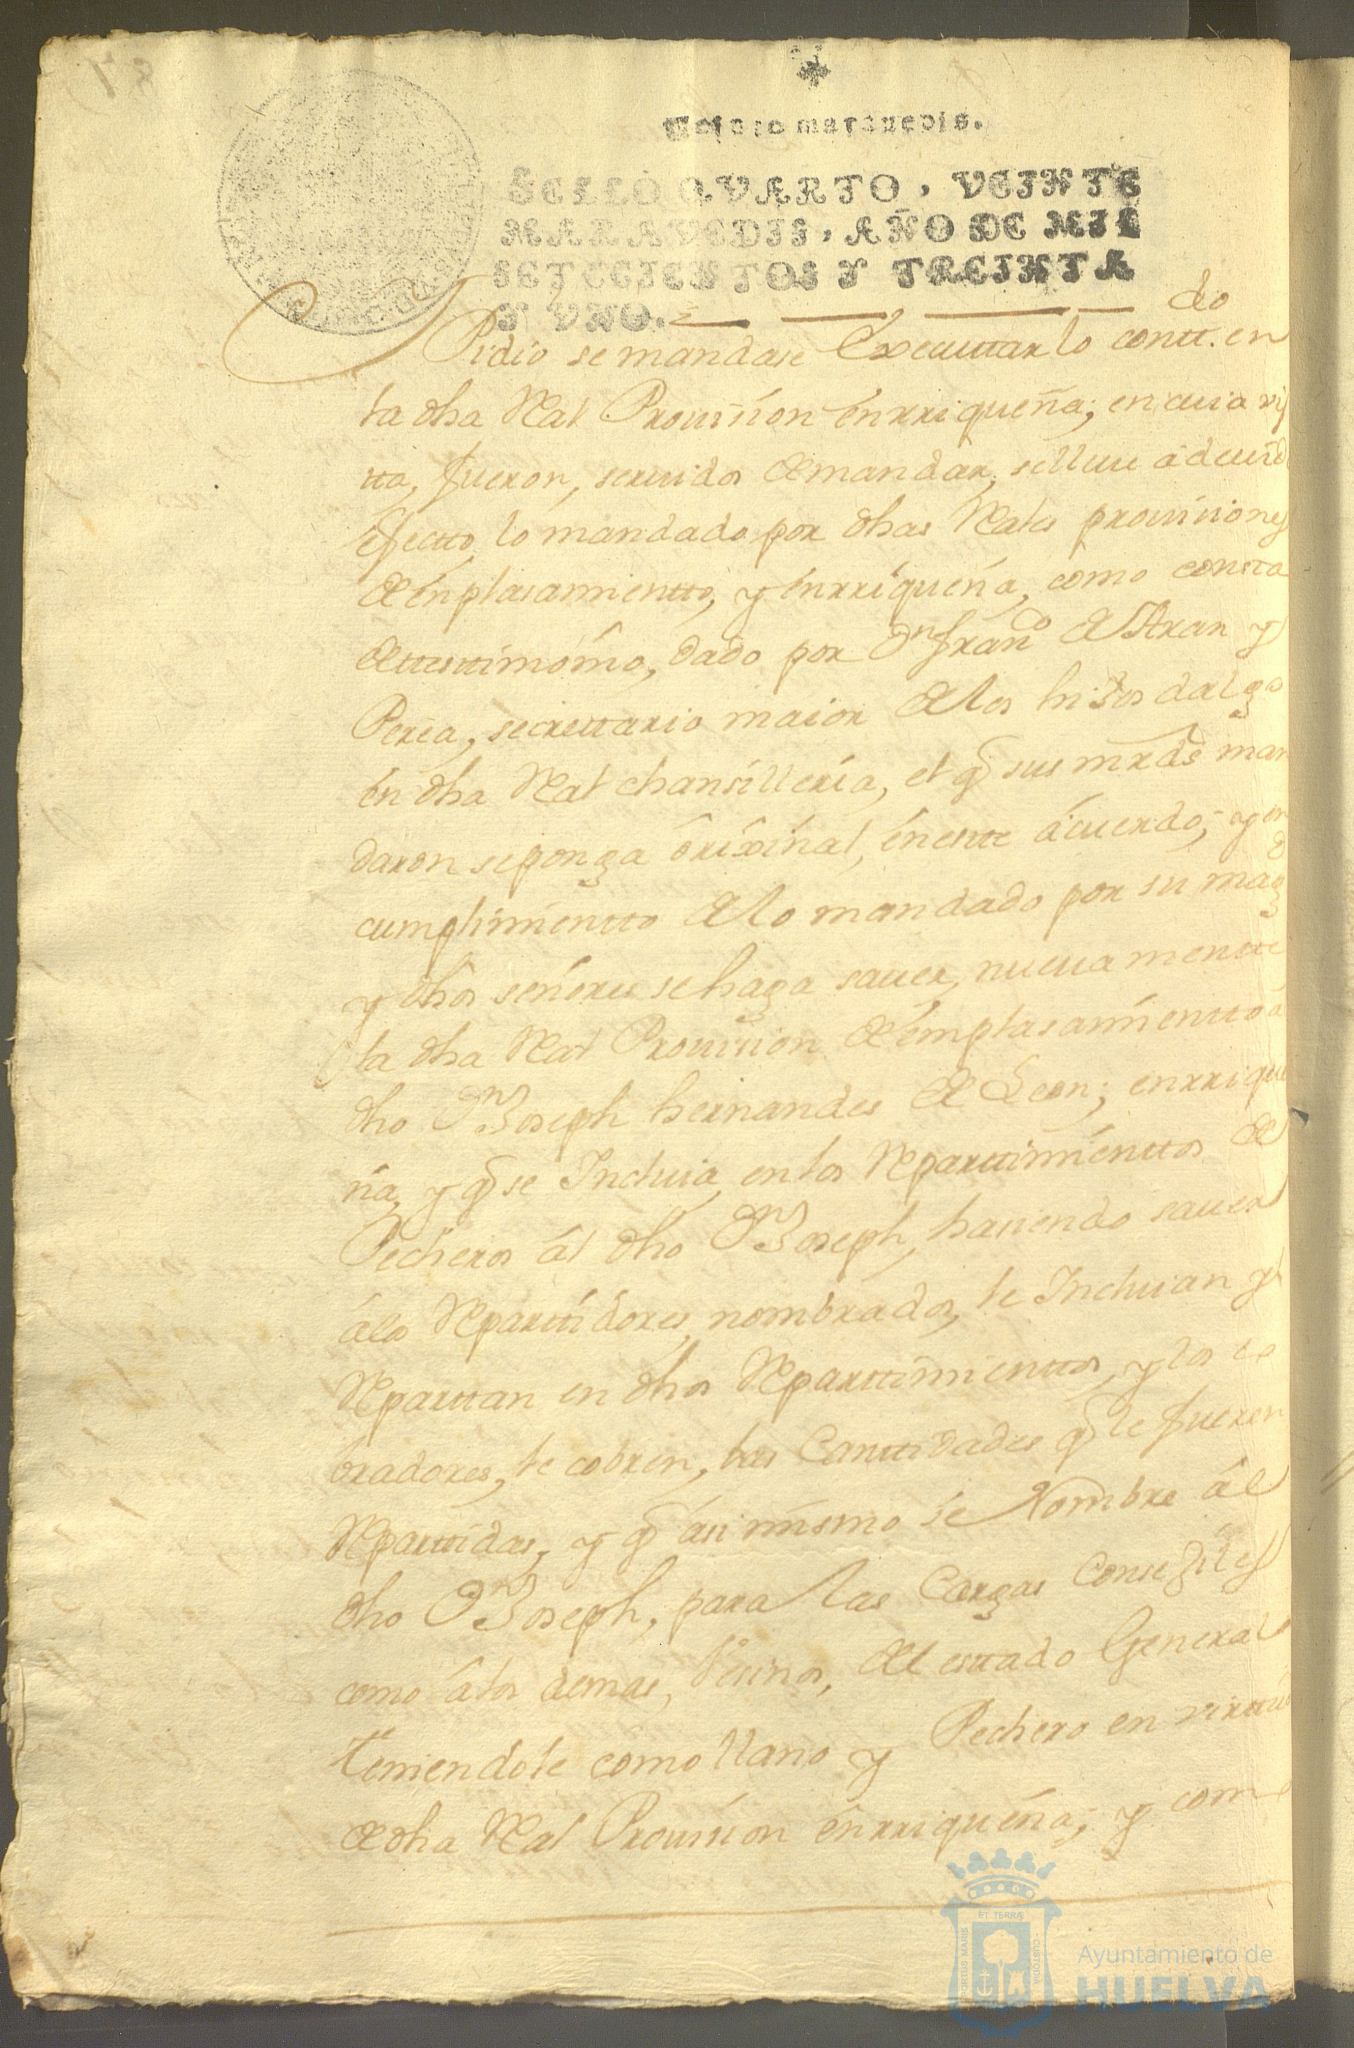 Veinte maravedis.
SELLO QVARTO, VEINTE
MARAVEDIS, AÑO DE MIL
SETECIENTOS Y TREINTA
Y VNO.
Pidio se mandase Executtar lo contt.do en
la dha Ral Prouission énrriqueña; en cuia vis
tta, fueron, seruidos de mandar, se lleue a deuido
efectto, lo mandado por dhas Rales prouisiones
de énplasamientto, y énrriqueña, como consta
de ttesttimonio, dado por Dn Franco de Aran y
Perea, secrettario maior de los hijos dalgo
én dha Ral chansilleria, el q sus mrdes man
daron se ponga órixinal, én estte ácuerdo; y en
cumplimientto de lo mandado por su magd
y dhos señores se haga sauer, nueuamentte
la dha Ral Prouission de émplasamientto á
dho Dn Joseph hernandes de Leon; enrrique
ña, y q se Incluia, en los Reparttimienttos de
Pecheros ál dho Dn Joseph, hasiendo sauer
á los Reparttidores nombrados, le Incluian y
Reparttan en dhos Reparttimienttos, y los co
bradores, le cobren, las Canttidades q le fueren
Reparttidas, y q ási mismo se Nombre ál
dho Dn Joseph, para las Cargas Consegiles
como á los demas, Vesinos, del esttado General
teniendole como llano y Pechero en virttud
de dha Ral Prouission énrriqueña; y com
Ayuntamiento de
HUELVA
PORTUS MARIS
ET TERRÆ
CUSTODIA